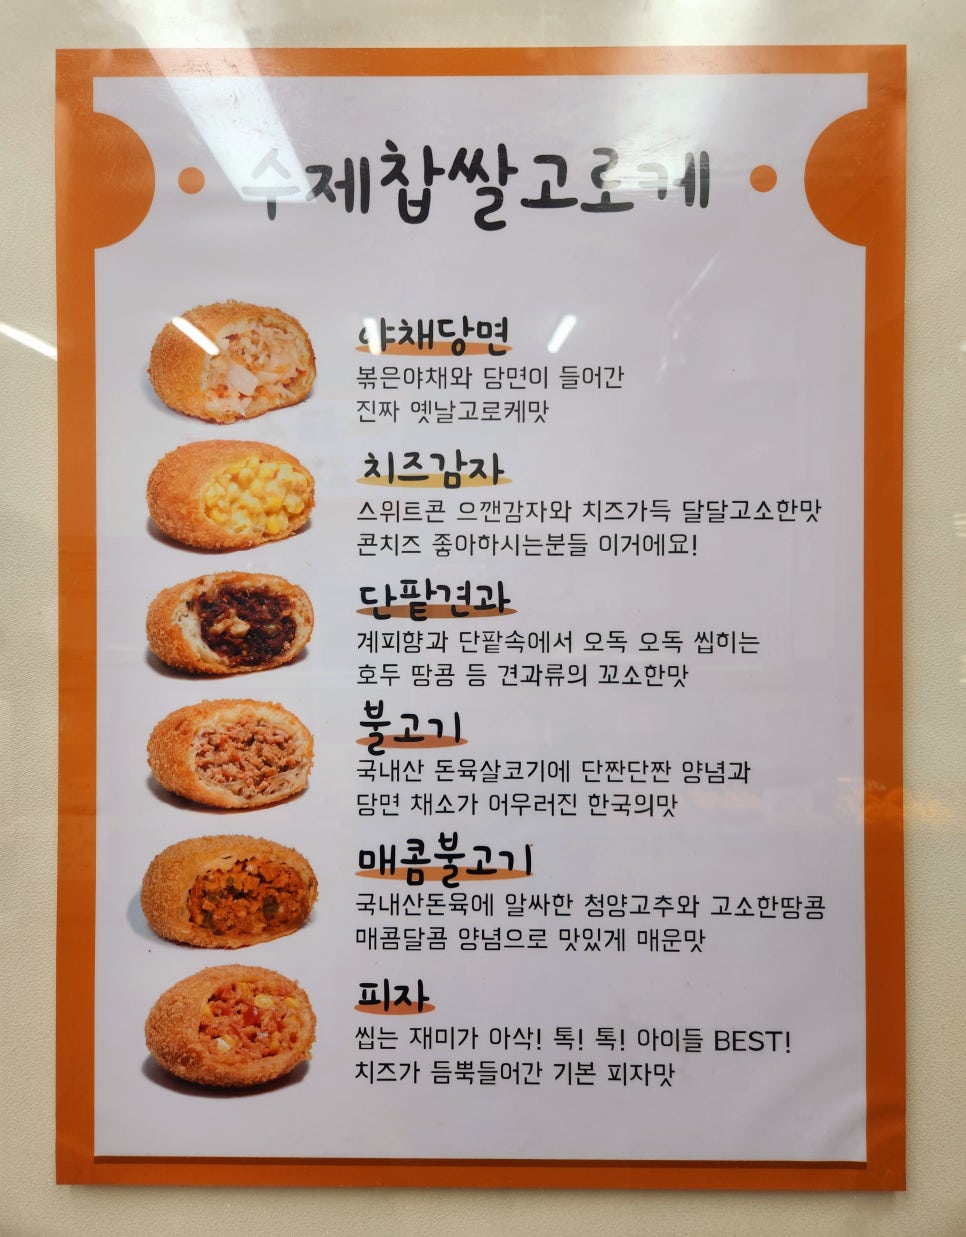 수제찹쌀고로케
야채당면
볶은야채와 당면이 들어간
진짜 옛날고로케맛
치즈감자
스위트콘 으깬감자와 치즈가득 달달고소한맛
콘치즈 좋아하시는분들 이거에요!
단팥견과
계피향과 단팥속에서 오독 오독 씹히는
호두 땅콩 등 견과류의 꼬소한맛
불고기
국내산 돈육살코기에 단짠단짠 양념과
당면 채소가 어우러진 한국의맛
매콤불고기
국내산돈육에 알싸한 청양고추와 고소한땅콩
매콤달콤 양념으로 맛있게 매운맛
피자
씹는 재미가 아삭! 톡! 톡! 아이들 BEST!
치즈가 듬뿍들어간 기본 피자맛